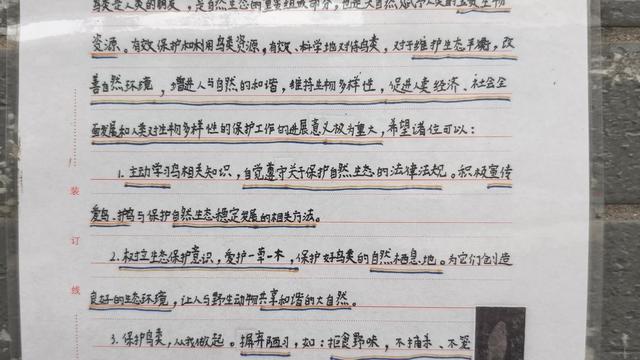 鸟类是人类的朋友，是自然生态的重要组成部分，也是大自然赋予人类的宝贵生物
资源。有效保护和利用鸟类资源，有效、科学地对待鸟类，对于维护生态平衡，改
善自然环境，增进人与自然的和谐，维持生物多样性，促进人类经济、社会全
面发展和人类对生物多样性的保护工作的进展意义极为重大，希望诸位可以：
1. 主动学习鸟相关知识，自觉遵守关于保护自然生态的法律法规。积极宣传
爱鸟、护鸟与保护自然生态稳定发展的相关方法。
2. 树立生态保护意识，爱护一草一木，保护好鸟类的自然栖息地。为它们创造
良好的生态环境，让人与野生动物共享和谐的大自然。
3. 保护鸟类，从我做起。摒弃陋习，如：拒食野味，不捕杀、不
装
订
线